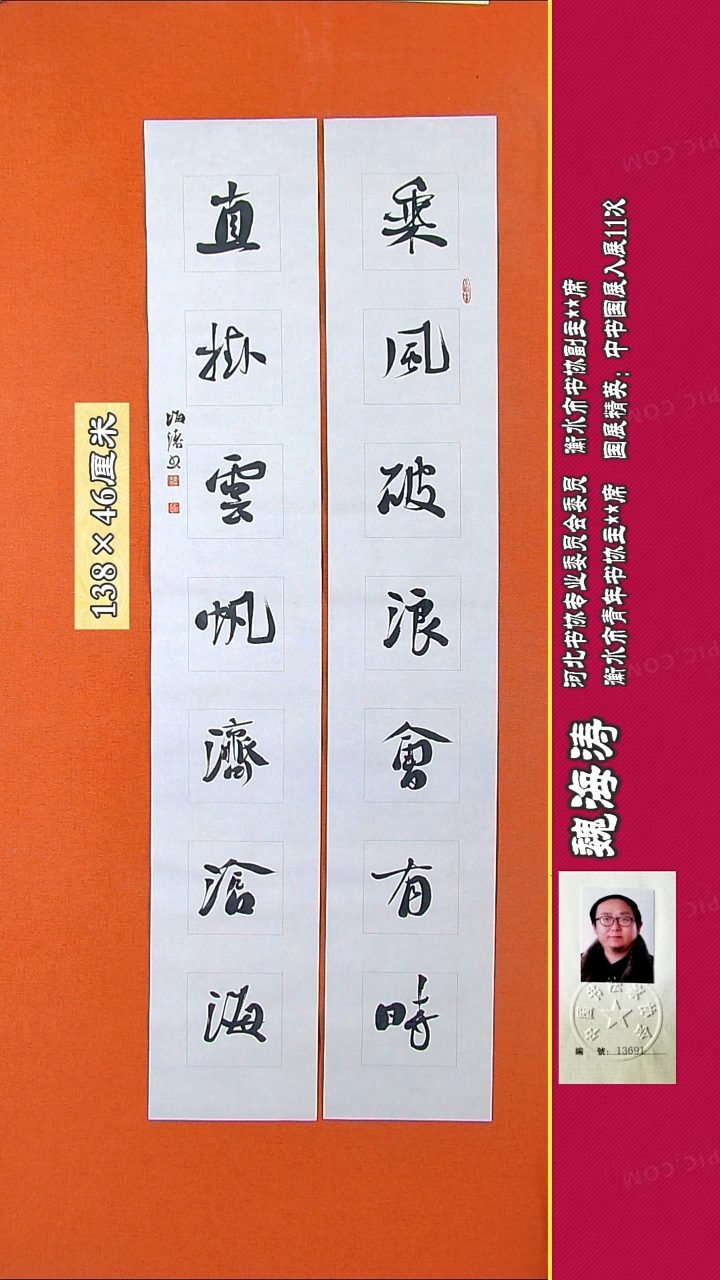 乘風破浪會有時
直掛雲帆濟滄海
海濤
138×46厘米
魏海涛
河北书协专业委员会委员 衡水市书协副主**席
衡水市青年书协主**席 国展精英：中书国展入展11次
編 號：13691
PIC.COM
PIC.COM
PIC.COM
PIC.COM
PIC.COM